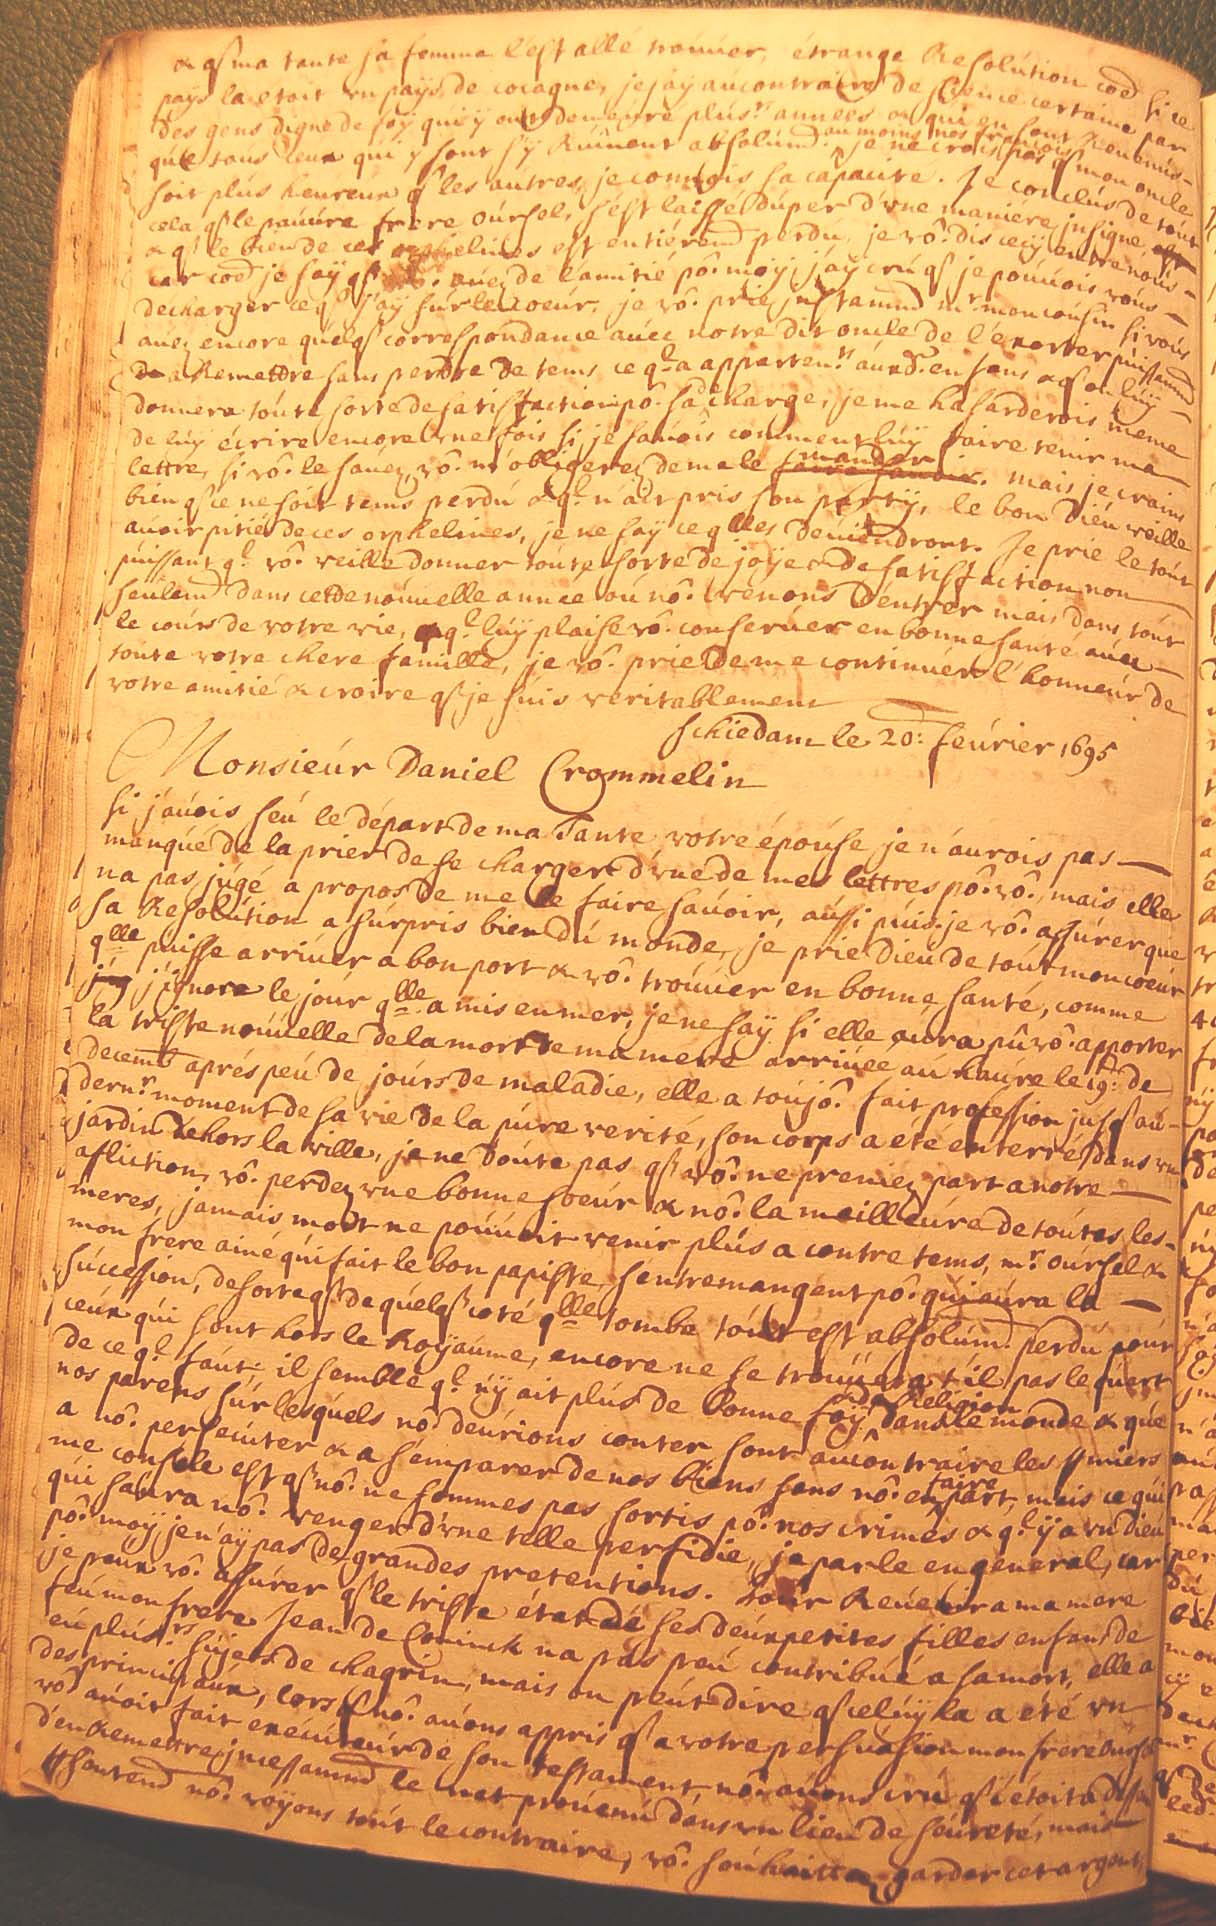 & qs ma tante sa femme l'est allé trouver, étrange Resolution coe si ce
pays la etoit un pays de cocagne, je say au contraire de science certaine par
des gens digne de foy qui y ont demeuré plus.rs années & qui en sont Revenus
que tous ceux qui y sont s'y Ruinent absolum.t au moins nos francois je ne crois pas qs mon oncle
soit plus heureux qs les autres, je connois sa capacité. Je conclus de tout
cela qs le pauvre frere oursel, s'est laissé duper d'une maniére insigne
& qs le bien de ces orphelines est entiérem.t perdu, je vô. dis cecy entre nous
car coe je say qs vô. avez de l'amitié pô. moy j'ay crû qs je pouvois vous
decharger ce qs j'ay sur le coeur, je vô. prie instamm.t m.r mon cousin si vous
avez encore quelqs correspondance avec notre dit oncle de l'exorter puissamm.t
de Remettre sans perdre de tems ce q.l a apparten.t aux d. enfans & qs on luy
donnera toute sorte de satisfaction pô. sa decharge, je me hasarderois meme
de luy écrire encore une fois si je savois comment luy faire tenir ma
lettre, si vô. le savez, vô. m'obligerez de me le mander. mais je crains
bien qs ce ne soit tems perdu & q.l n'ait pris son party, le bon Dieu veille
avoir pitié de ces orphelines, je ne say ce qlles deviendront. Je prie le tout
puissant q.l vô. veille donner toute sorte de joye & de satisfaction non
seulem.t dans cette nouvelle année où nô. venons d'entrer mais dans tout
le cours de votre vie, & q.l luy plaise vô. conserver en bonne santé avec
toute votre chere famille, je vô. prie de me continuer l'honneur de
votre amitié & croire qs je suis veritablement
Schiedam le 20: feúrier 1695
Monsieúr Daniel Crommelin
Si j'avois seú le départ de ma Tante votre épouse je n'aurois pas
manqué de la prier de se charger d'une de mes lettres pô. vô., mais elle
na pas jugé a propos de me le faire savoir, aussi puis-je vô. assurer que
sa Resolution a surpris bien du monde, je prie Dieu de tout mon coeur
qlle puisse arriver a bon port & vô. trouver en bonne santé, comme
j'ignore le jour qlle a mis en mer, je ne say si elle aura pû vô. apporter
la triste nouvelle de la mort de ma mere arrivée au havre le 19: de
decemb aprés peu de jours de maladie, elle a toujô. fait profession jusqs au
dern.r moment de sa vie de la pure verité, son corps a été enterré dans un
jardin dehors la ville, je ne doute pas qs vô. ne preniez part a notre
afliction, vô. perdez une bonne soeur & nô. la meilleure de toutes les
meres, jamais mort ne pouvoit venir plus a contre tems, m.r oursel &
mon frere ainé qui fait le bon papiste, s'entremangent pô. qui aura la
succession, de sorte qs de quelqs coté qlle tombe tout est absolum.t perdu pour
ceux qui sont hors le Royaume, encore ne se trouvera t'il pas le quert
de ce q.l faut, il semble q.l n'y ait plus de bonne foy & de Religion dans le monde & que
nos parens sur lesquels nô. deurions conter sont au contraire les premiers
a nô. persecuter & a s'emparer de nos biens sans nô. en faire part, mais ce qui
me console est qs nô. ne sommes pas sortis pô. nos crimes & q.l y a un Dieu
qui saura nô. venger d'une telle perfidie, je parle en general, car
pô. moy je n'ay pas de grandes pretentions. Pour Revenir a ma mere
je peux vô. assurer qs le triste état de ses deux petites filles enfans de
feu mon frere Jean de Coninck na pas peu contribué a sa mort, elle a
eu plus.rs sujets de chagrin, mais on peut dire qs celuy la a été un
des principaux, lors qs nô. avons appris qs a votre persuasion mon frere oursel
vô. avoit fait executeur de son testament nô. avons cru qs c'étoit a dessein
d'en Remettre incessamm.t le net provenu dans un lieu de seureté, mais
nô. voyons tout le contraire, vô. souhaittez garder cet argent,